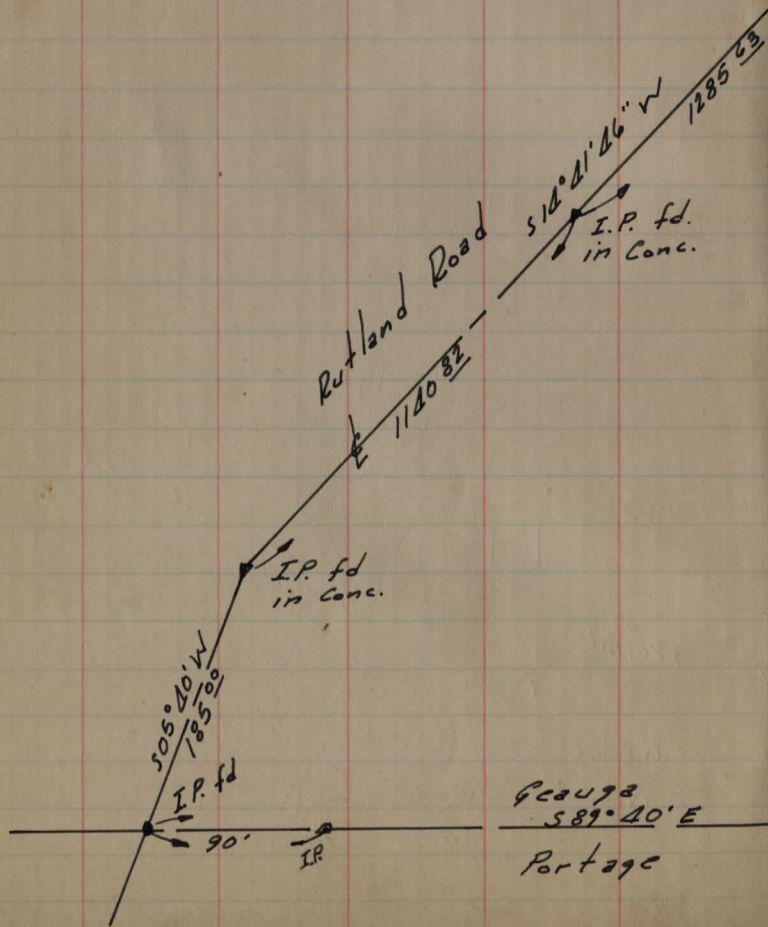 1285 63
S 14° 41' 46" W
I.P. fd.
in Conc.
Rutland Road
1140 82
℄
I.P. fd
in Conc.
S05° 40' W
185 00
I.P. fd
90'
I.P.
Geauga
S89° 40' E
Portage